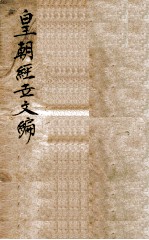 皇朝經世文編